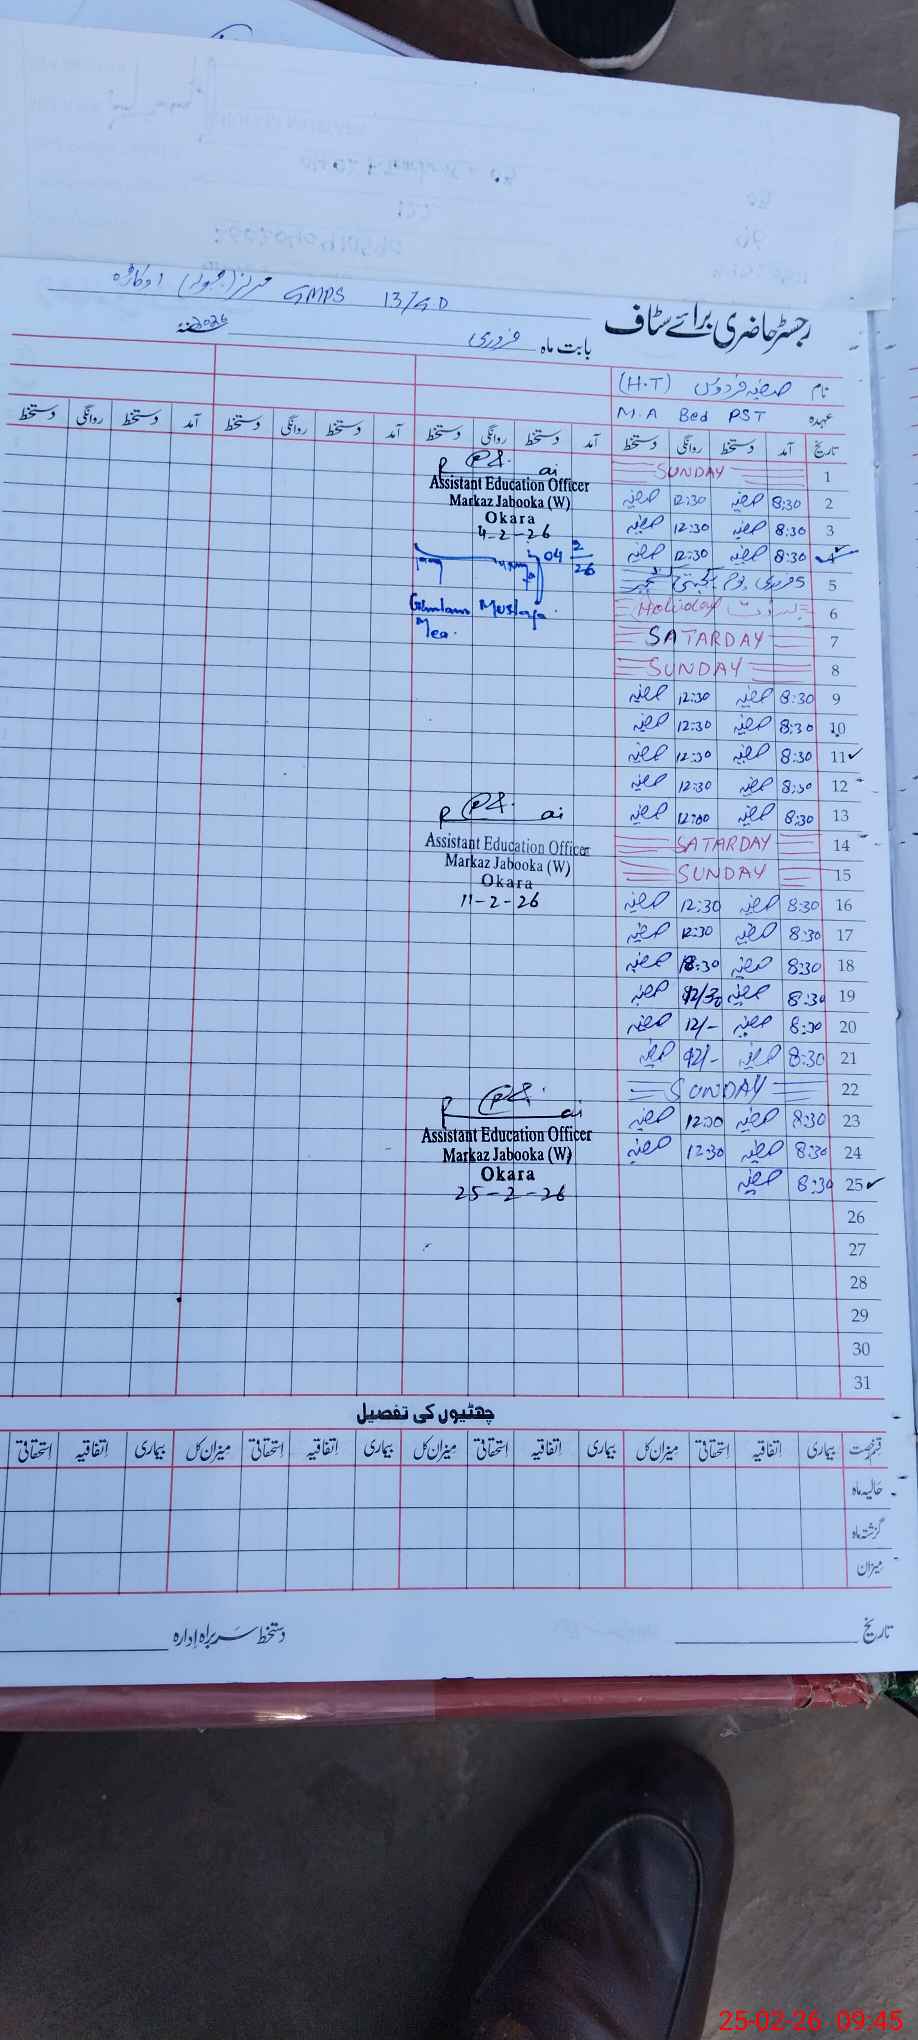 GMPS 13/GD مرکز (جبوکہ) اوکاڑہ
رجسٹر حاضری برائے سٹاف
بابت ماہ فروری 2026
نام صفیہ فردوس (H.T)
عہدہ M.A Bed PST
تاریخ آمد دستخط روانگی دستخط آمد دستخط روانگی دستخط آمد دستخط روانگی دستخط آمد دستخط روانگی دستخط
1 SUNDAY
2 8:30 صفیہ 12:30 صفیہ
3 8:30 صفیہ 12:30 صفیہ
4 8:30 صفیہ 12:30 صفیہ
5 5 فروری یوم یکجہتی کشمیر
6 بسنت Holiday
7 SATARDAY
8 SUNDAY
9 8:30 صفیہ 12:30 صفیہ
10 8:30 صفیہ 12:30 صفیہ
11 8:30 صفیہ 12:30 صفیہ
12 8:30 صفیہ 12:30 صفیہ
13 8:30 صفیہ 12:00 صفیہ
14 SATARDAY
15 SUNDAY
16 8:30 صفیہ 12:30 صفیہ
17 8:30 صفیہ 12:30 صفیہ
18 8:30 صفیہ 12:30 صفیہ
19 8:30 صفیہ 12/30 صفیہ
20 8:30 صفیہ 12/- صفیہ
21 8:30 صفیہ 12/- صفیہ
22 SUNDAY
23 8:30 صفیہ 12:30 صفیہ
24 8:30 صفیہ 12:30 صفیہ
25 8:30 صفیہ
26
27
28
29
30
31
Assistant Education Officer
Markaz Jabooka (W)
Okara
4-2-26
04 2/26
Ghulam Mustafa
Mea.
Assistant Education Officer
Markaz Jabooka (W)
Okara
11-2-26
Assistant Education Officer
Markaz Jabooka (W)
Okara
25-2-26
چھٹیوں کی تفصیل
قسم رخصت بیماری اتفاقیہ استحقاقی میزان کل بیماری اتفاقیہ استحقاقی میزان کل بیماری اتفاقیہ استحقاقی میزان کل بیماری اتفاقیہ استحقاقی
حالیہ ماہ
گزشتہ ماہ
میزان
تاریخ دستخط سربراہ ادارہ
25-02-26 09:45